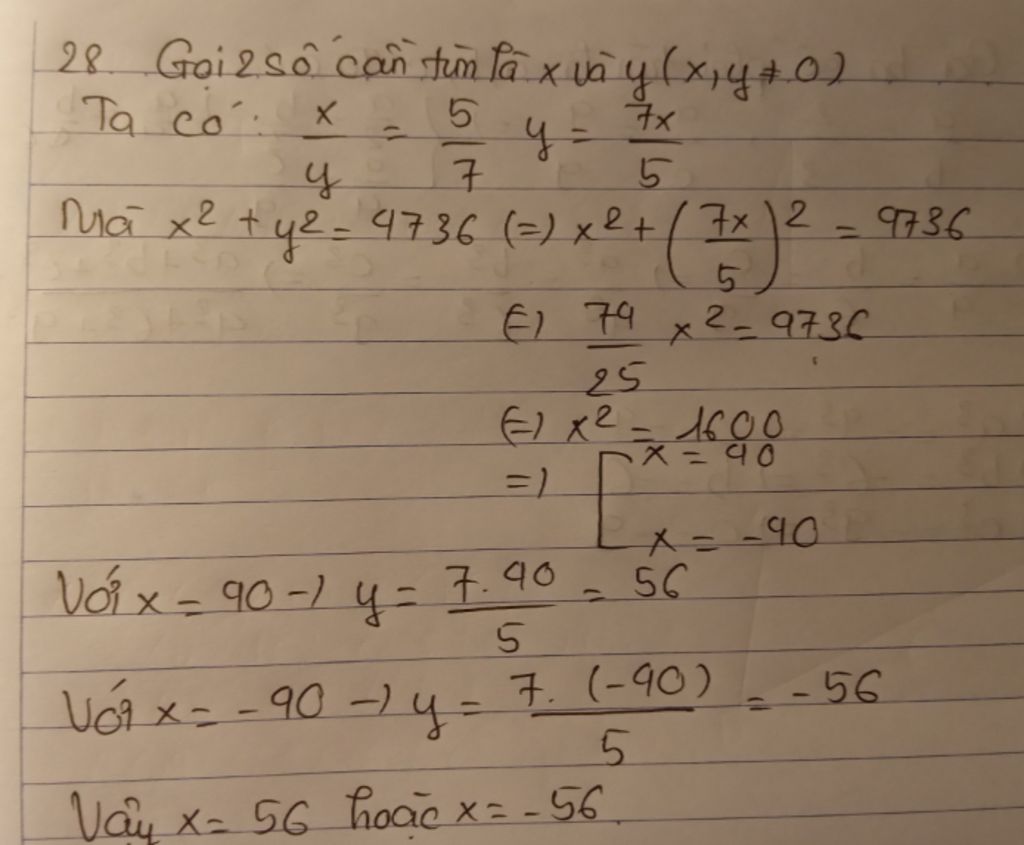 28. Gọi 2 số cần tìm là x và y (x, y ≠ 0)
Ta có: x/y = 5/7 y = 7x/5
Mà x² + y² = 4736 (=) x² + (7x/5)² = 4736
(=) 74/25 x² = 4736
(=) x² = 1600
=) [ x = 40
x = -40
Với x = 40 -) y = 7.40/5 = 56
Với x = -40 -) y = 7.(-40)/5 = -56
Vậy x = 56 hoặc x = -56.